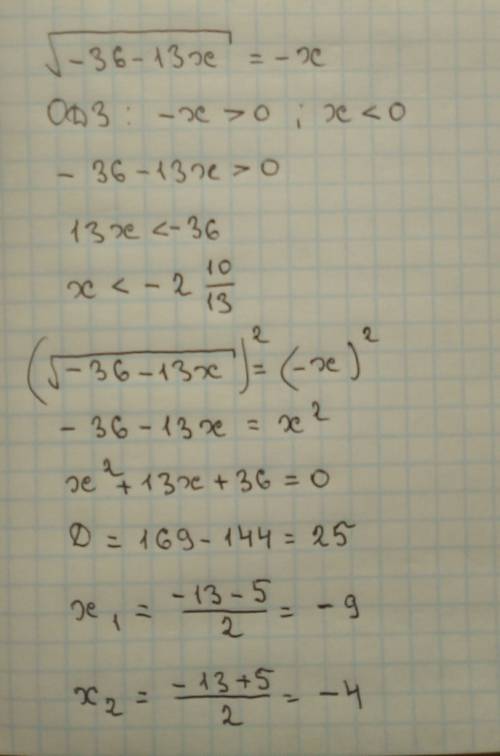 √(-36-13x) = -x
ОДЗ: -x > 0 ; x < 0
- 36 - 13x > 0
13x < -36
x < - 2 10/13
(√(-36-13x))² = (-x)²
- 36 - 13x = x²
x² + 13x + 36 = 0
D = 169 - 144 = 25
x₁ = (-13 - 5)/2 = - 9
x₂ = (-13 + 5)/2 = - 4